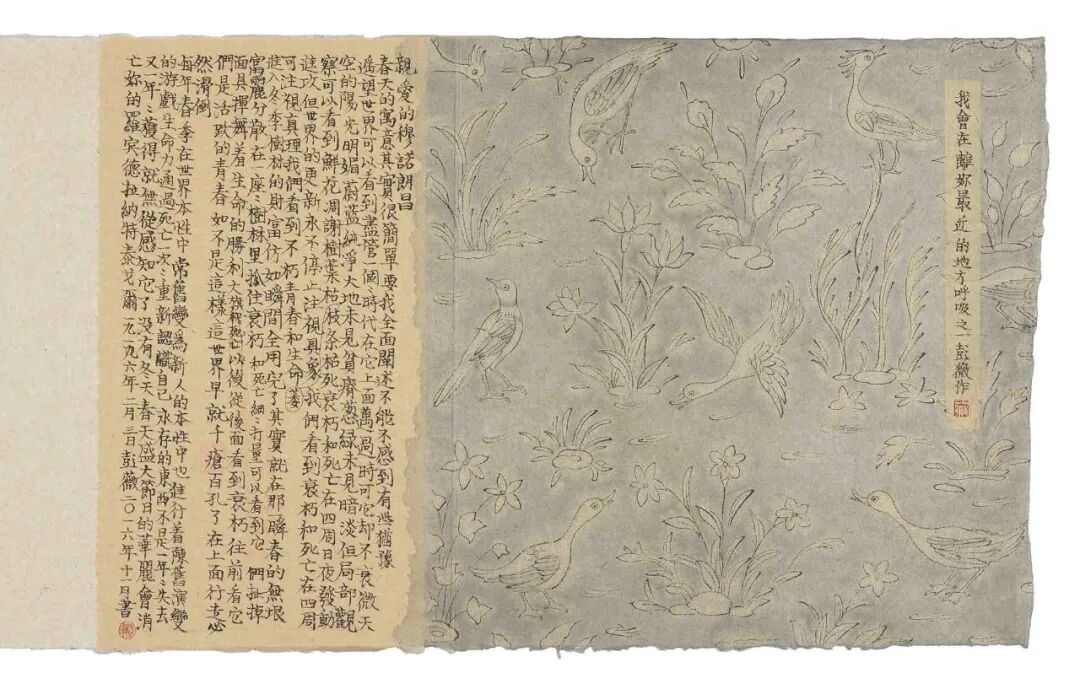 我會在離妳最近的地方呼吸之一 彭薇作
親愛的穆諾朗昌
春天的寓意其實很簡單要我全面闡述不能不感到有些猶豫
遥望世界可以看到盡管一個時代在它上面萬過時可它却不衰微天
空的陽光明媚蔚藍純淨大地未見貧瘠葱緑未見暗淡但局部觀
察可以看到鮮花凋謝樹葉枯枝条枯死衰朽和死亡在四周日夜發動
進攻但世界的更新永不停止注視具象我們看到衰朽和死亡在四周
可注視真理我們看到不朽青春和生命
進入冬季樹林的財富仿如瞬間全用完了其實就在那一瞬春的無垠
富麗分散在一座座樹林里抓住衰朽和死亡細細打量可以看到它們扯掉
面具揮舞着生命的勝利大旗以後從後面看到衰朽往前看它
們是活跃的青春如不是這樣這世界早就千瘡百孔了在上面行走
然滑倒
每年春季在世界本性中常舊變爲新人的本性中也進行着陳舊演變
的游戲生命力通過死亡一次次重新認識自己永存的東西不是一年年失去
又一年年獲得就無從感知它了没有冬天春天盛大節日的華麗會消
亡妳的羅宾德拉納特泰戈爾一九一六年二月三日彭薇二〇一六年十一日書